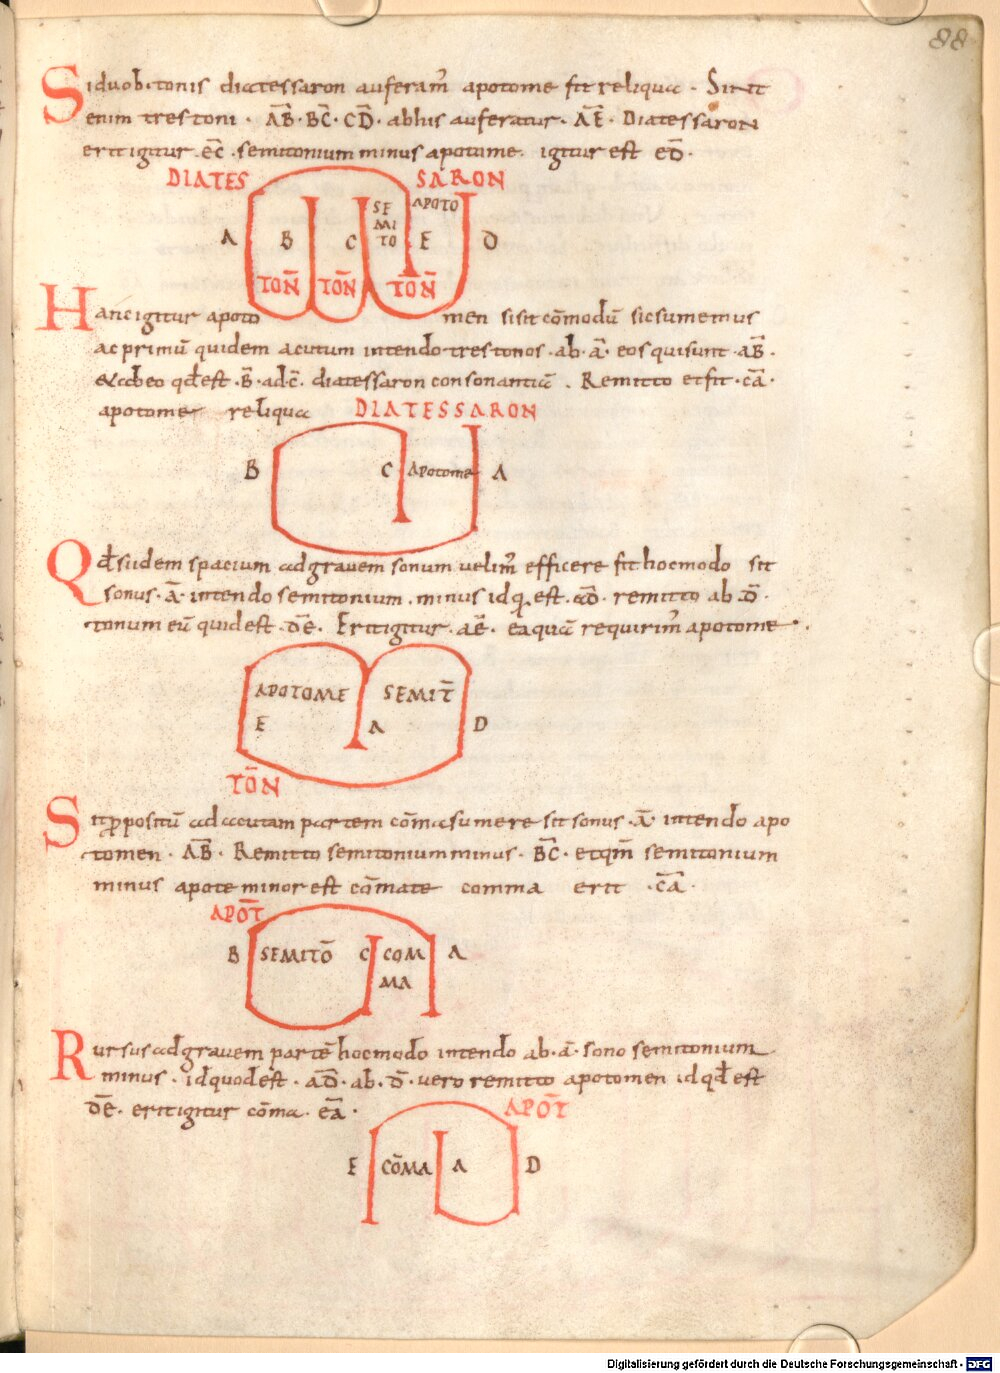 88
Siduob·tonis diatessaron auferam̄ apotome fit reliqua · Sint
enim tres toni · A̅B̅ · B̅C̅ · C̅D̅ · abhis auferatur · A̅E̅ · Diatessaron
erit igitur · e̅c̅ · semitonium minus apotome · igitur est e̅d̅ ·
DIATES SARON
A B C SE MI TO APOTO E D
TOÑ TOÑ TOÑ
Hanc igitur apoto men si sit cōmodū sic sumemus
ac primū quidem acutum intendo tres tonos · ab · a̅ · eos qui sunt · a̅b̅ ·
qđ est · b̅ · ad · c̅ · diatessaron consonantia · Remitto et fit · c̅a̅ ·
apotome reliqua DIATESSARON
B C Apotome A
Qđ si idem spacium ad gravem sonum uelim̄ efficere fit hoc modo sit
sonus · a̅ · intendo semitonium · minus id q est · a̅d̅ · remitto ab · d̅ ·
tonum eū quid est · d̅e̅ · Erit igitur · a̅e̅ · ea quā requirim̄ apotome · .
APOTOME SEMIT̄
E A D
TŌN
Sit ppositū ad acutam partem cōma sumere sit sonus · a̅ · intendo apo
tomen · A̅B̅ · Remitto semitonium minus · b̅c̅ · et qm̄ semitonium
minus apote minor est cōmate comma erit · c̅a̅ ·
APOT̄
B SEMITŌ C COM MA A
Rursus ad gravem partē hoc modo intendo ab · a̅ · sono semitonium
minus · id quod est · a̅d̅ · ab · d̅ · vero remitto apotomen id qđ est
d̅e̅ · erit igitur cōma · e̅a̅ ·
APOT̄
E CŌMA A D
Digitalisierung gefördert durch die Deutsche Forschungsgemeinschaft - DFG